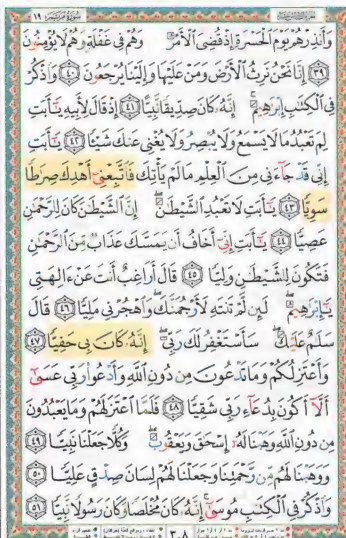 سورة مريم ١٩
وَأَنذِرْهُمْ يَوْمَ الْحَسْرَةِ إِذْ قُضِىَ الْأَمْرُ وَهُمْ فِى غَفْلَةٍ وَهُمْ لَا يُؤْمِنُونَ
۝٣٩ إِنَّا نَحْنُ نَرِثُ الْأَرْضَ وَمَنْ عَلَيْهَا وَإِلَيْنَا يُرْجَعُونَ ۝٤٠ وَاذْكُرْ
فِى الْكِتَٰبِ إِبْرَٰهِيمَ ۚ إِنَّهُ كَانَ صِدِّيقًا نَّبِيًّا ۝٤١ إِذْ قَالَ لِأَبِيهِ يَٰٓأَبَتِ
لِمَ تَعْبُدُ مَا لَا يَسْمَعُ وَلَا يُبْصِرُ وَلَا يُغْنِى عَنكَ شَيْـًٔا ۝٤٢ يَٰٓأَبَتِ
إِنِّى قَدْ جَآءَنِى مِنَ الْعِلْمِ مَا لَمْ يَأْتِكَ فَاتَّبِعْنِىٓ أَهْدِكَ صِرَٰطًا
سَوِيًّا ۝٤٣ يَٰٓأَبَتِ لَا تَعْبُدِ الشَّيْطَٰنَ ۖ إِنَّ الشَّيْطَٰنَ كَانَ لِلرَّحْمَٰنِ
عَصِيًّا ۝٤٤ يَٰٓأَبَتِ إِنِّىٓ أَخَافُ أَن يَمَسَّكَ عَذَابٌ مِّنَ الرَّحْمَٰنِ
فَتَكُونَ لِلشَّيْطَٰنِ وَلِيًّا ۝٤٥ قَالَ أَرَاغِبٌ أَنتَ عَنْ ءَالِهَتِى
يَٰٓإِبْرَٰهِيمُ ۖ لَئِن لَّمْ تَنتَهِ لَأَرْجُمَنَّكَ ۖ وَاهْجُرْنِى مَلِيًّا ۝٤٦ قَالَ
سَلَٰمٌ عَلَيْكَ ۖ سَأَسْتَغْفِرُ لَكَ رَبِّىٓ ۖ إِنَّهُ كَانَ بِى حَفِيًّا ۝٤٧
وَأَعْتَزِلُكُمْ وَمَا تَدْعُونَ مِن دُونِ اللَّهِ وَأَدْعُوا۟ رَبِّى عَسَىٰٓ
أَلَّآ أَكُونَ بِدُعَآءِ رَبِّى شَقِيًّا ۝٤٨ فَلَمَّا اعْتَزَلَهُمْ وَمَا يَعْبُدُونَ
مِن دُونِ اللَّهِ وَهَبْنَا لَهُۥٓ إِسْحَٰقَ وَيَعْقُوبَ ۖ وَكُلًّا جَعَلْنَا نَبِيًّا ۝٤٩
وَوَهَبْنَا لَهُم مِّن رَّحْمَتِنَا وَجَعَلْنَا لَهُمْ لِسَانَ صِدْقٍ عَلِيًّا ۝٥٠
وَاذْكُرْ فِى الْكِتَٰبِ مُوسَىٰٓ ۚ إِنَّهُ كَانَ مُخْلَصًا وَكَانَ رَسُولًا نَّبِيًّا ۝٥١
٣٠٨